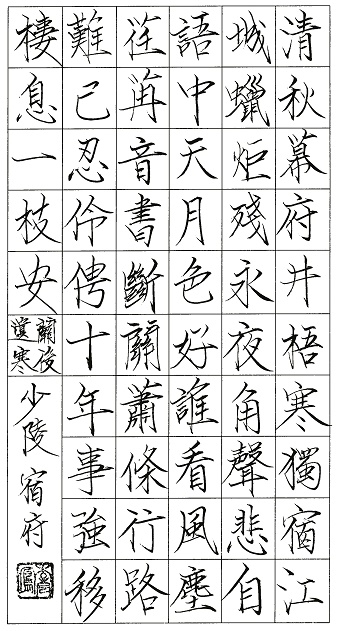 清秋幕府井梧寒獨宿江
城蠟炬殘永夜角聲悲自
語中天月色好誰看風塵
荏苒音書斷關蕭條行路
難已忍伶俜十年事強移
棲息一枝安
關後遺
少陵宿府